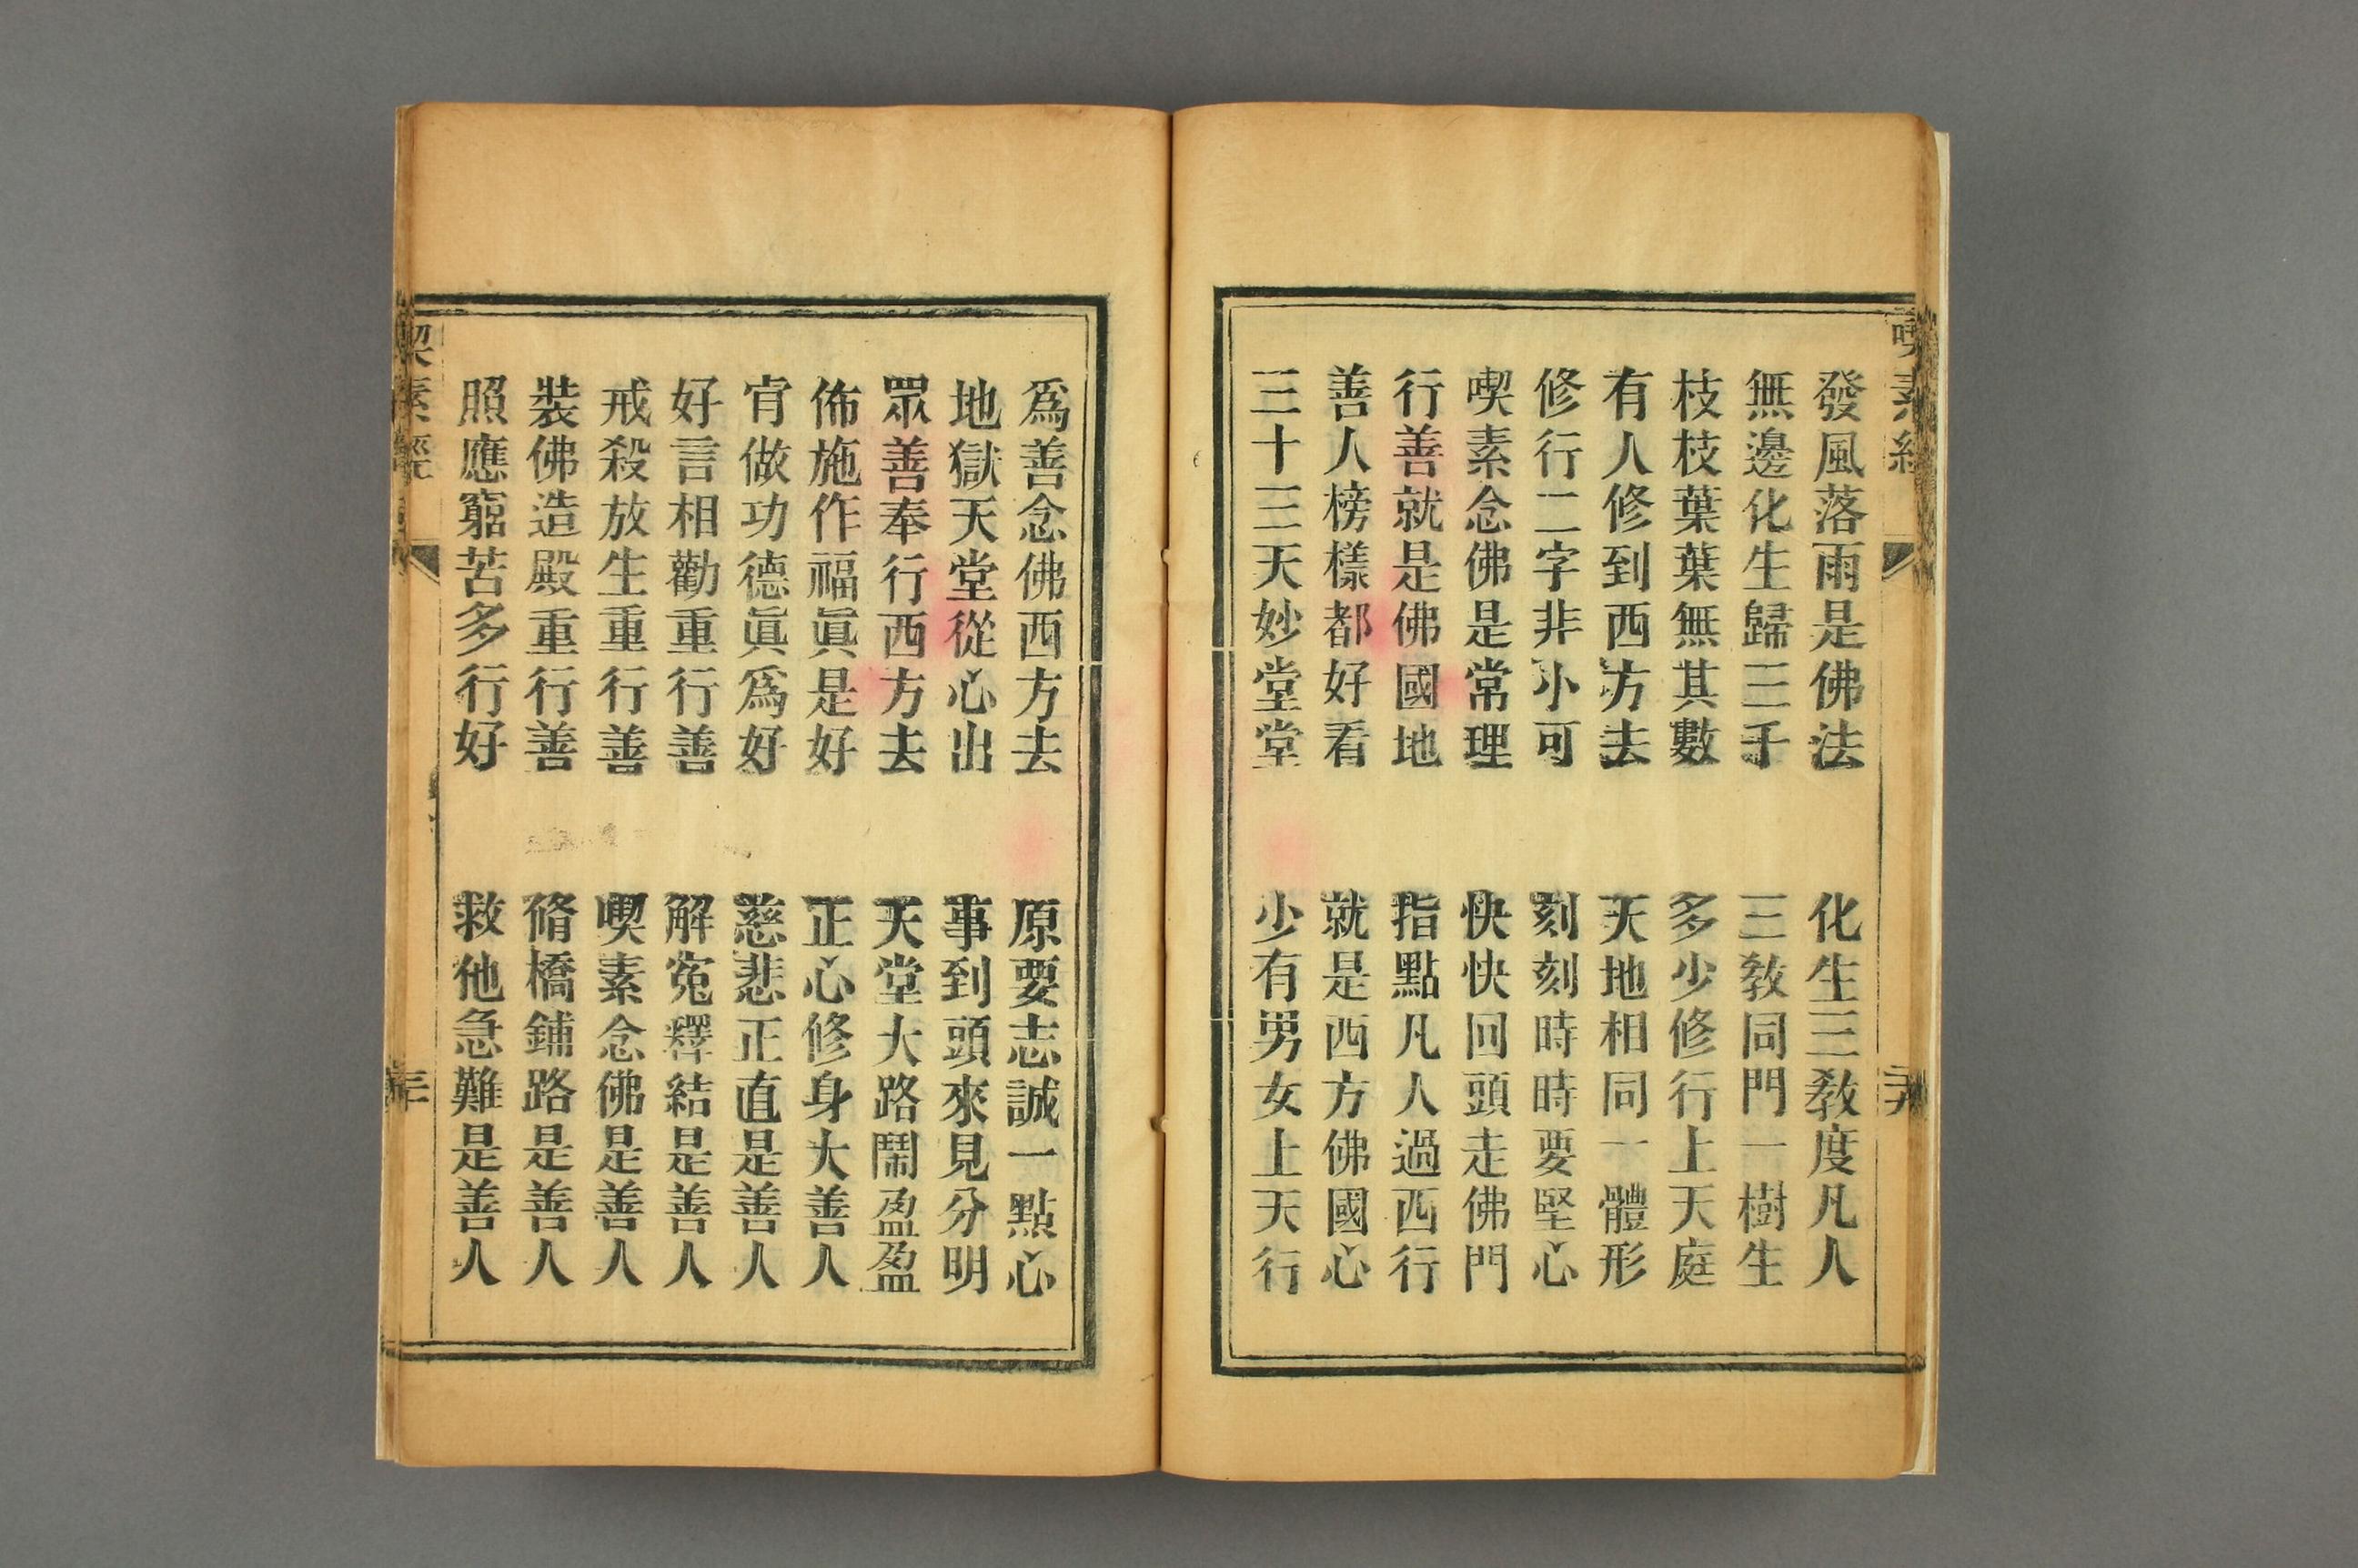 喫素經
發風落雨是佛法　化生三教度凡人
無邊化生歸三千　三教同門一樹生
枝枝葉葉無其數　多少修行上天庭
有人修到西方去　天地相同一體形
修行二字非小可　刻刻時時要堅心
喫素念佛是常理　快快回頭走佛門
行善就是佛國地　指點凡人過西行
善人榜樣都好看　就是西方佛國心
三十三天妙堂堂　少有男女上天行
為善念佛西方去　原要志誠一點心
地獄天堂從心出　事到頭來見分明
眾善奉行西方去　天堂大路鬧盈盈
佈施作福眞是好　正心修身大善人
肯做功德眞為好　慈悲正直是善人
好言相勸重行善　解寃釋結是善人
戒殺放生重行善　喫素念佛是善人
裝佛造殿重行善　脩橋鋪路是善人
照應窮苦多行好　救他急難是善人
喫素經